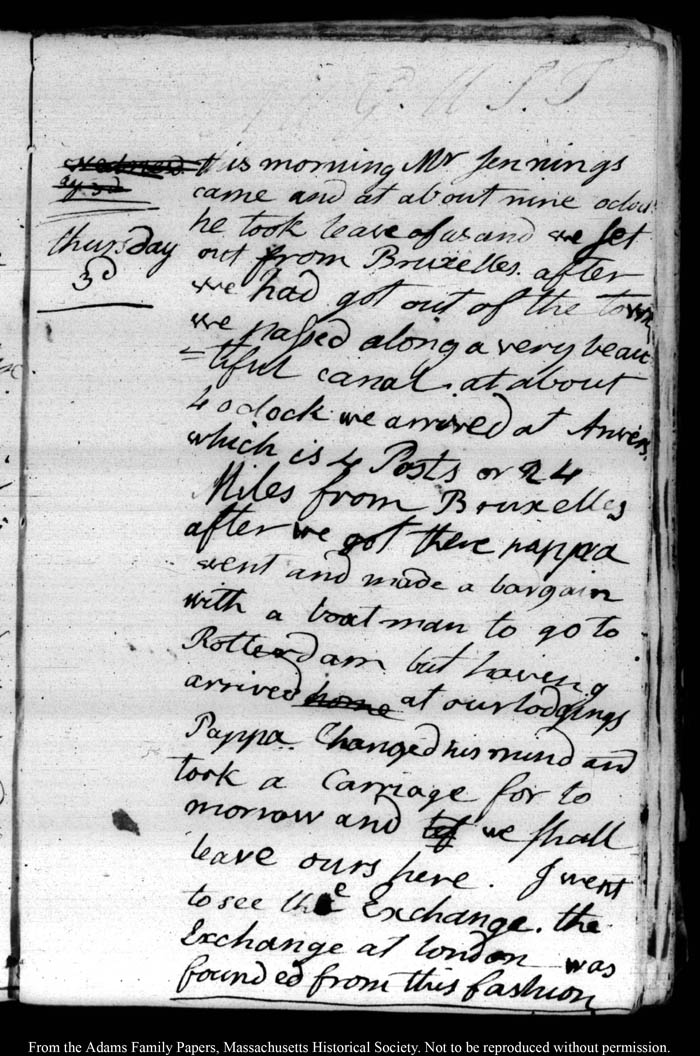 G. U S. T
wednesd
ay 3d
thursday
3d
this morning Mr Jennings
came and at about nine oclock
he took leave of us and we set
out from Bruxelles. after
we had got out of the town
we passed along a very beau
=tiful canal. at about
4 oclock we arrived at Anvers
which is 4 Posts or 24
Miles from Bruxelles
after we got there pappa
went and made a bargain
with a boat man to go to
Rotterdam but having
arrived home at our lodgings
Pappa Changed his mind and
took a Carriage for to
morrow and we shall
leave ours here. I went
to see the Exchange. the
Exchange at london was
founded from this fashion
From the Adams Family Papers, Massachusetts Historical Society. Not to be reproduced without permission.